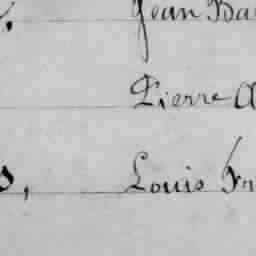 Jean Ba
Pierre A
s, Louis Fr